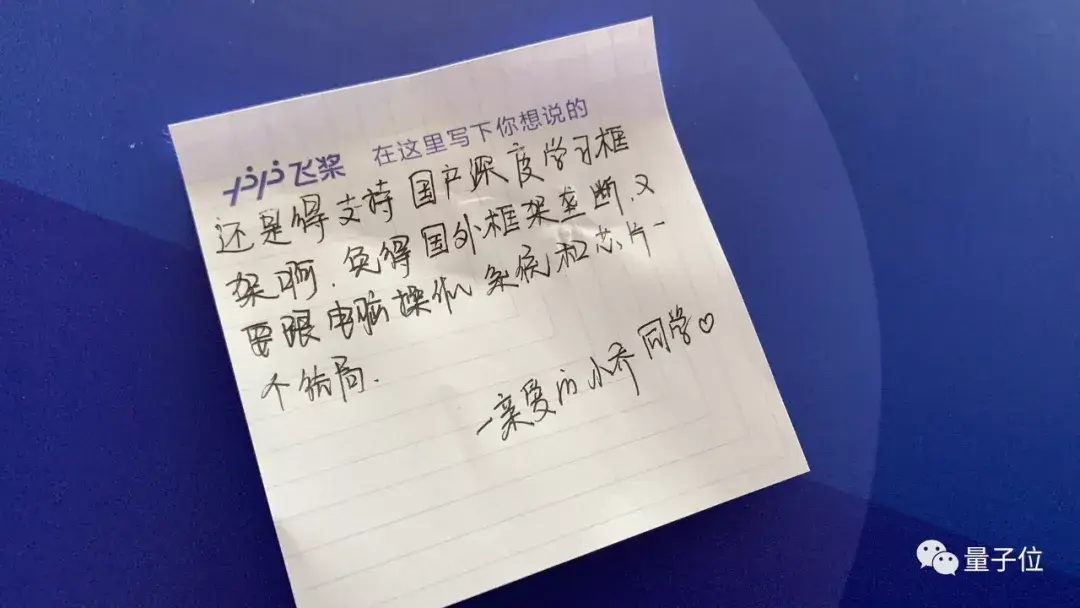 飞桨 在这里写下你想说的
还是得支持国产深度学习框
架啊.免得国外框架垄断.又
要跟电脑操作系统和芯片一
个结局.
-亲爱的小乔同学♡
量子位